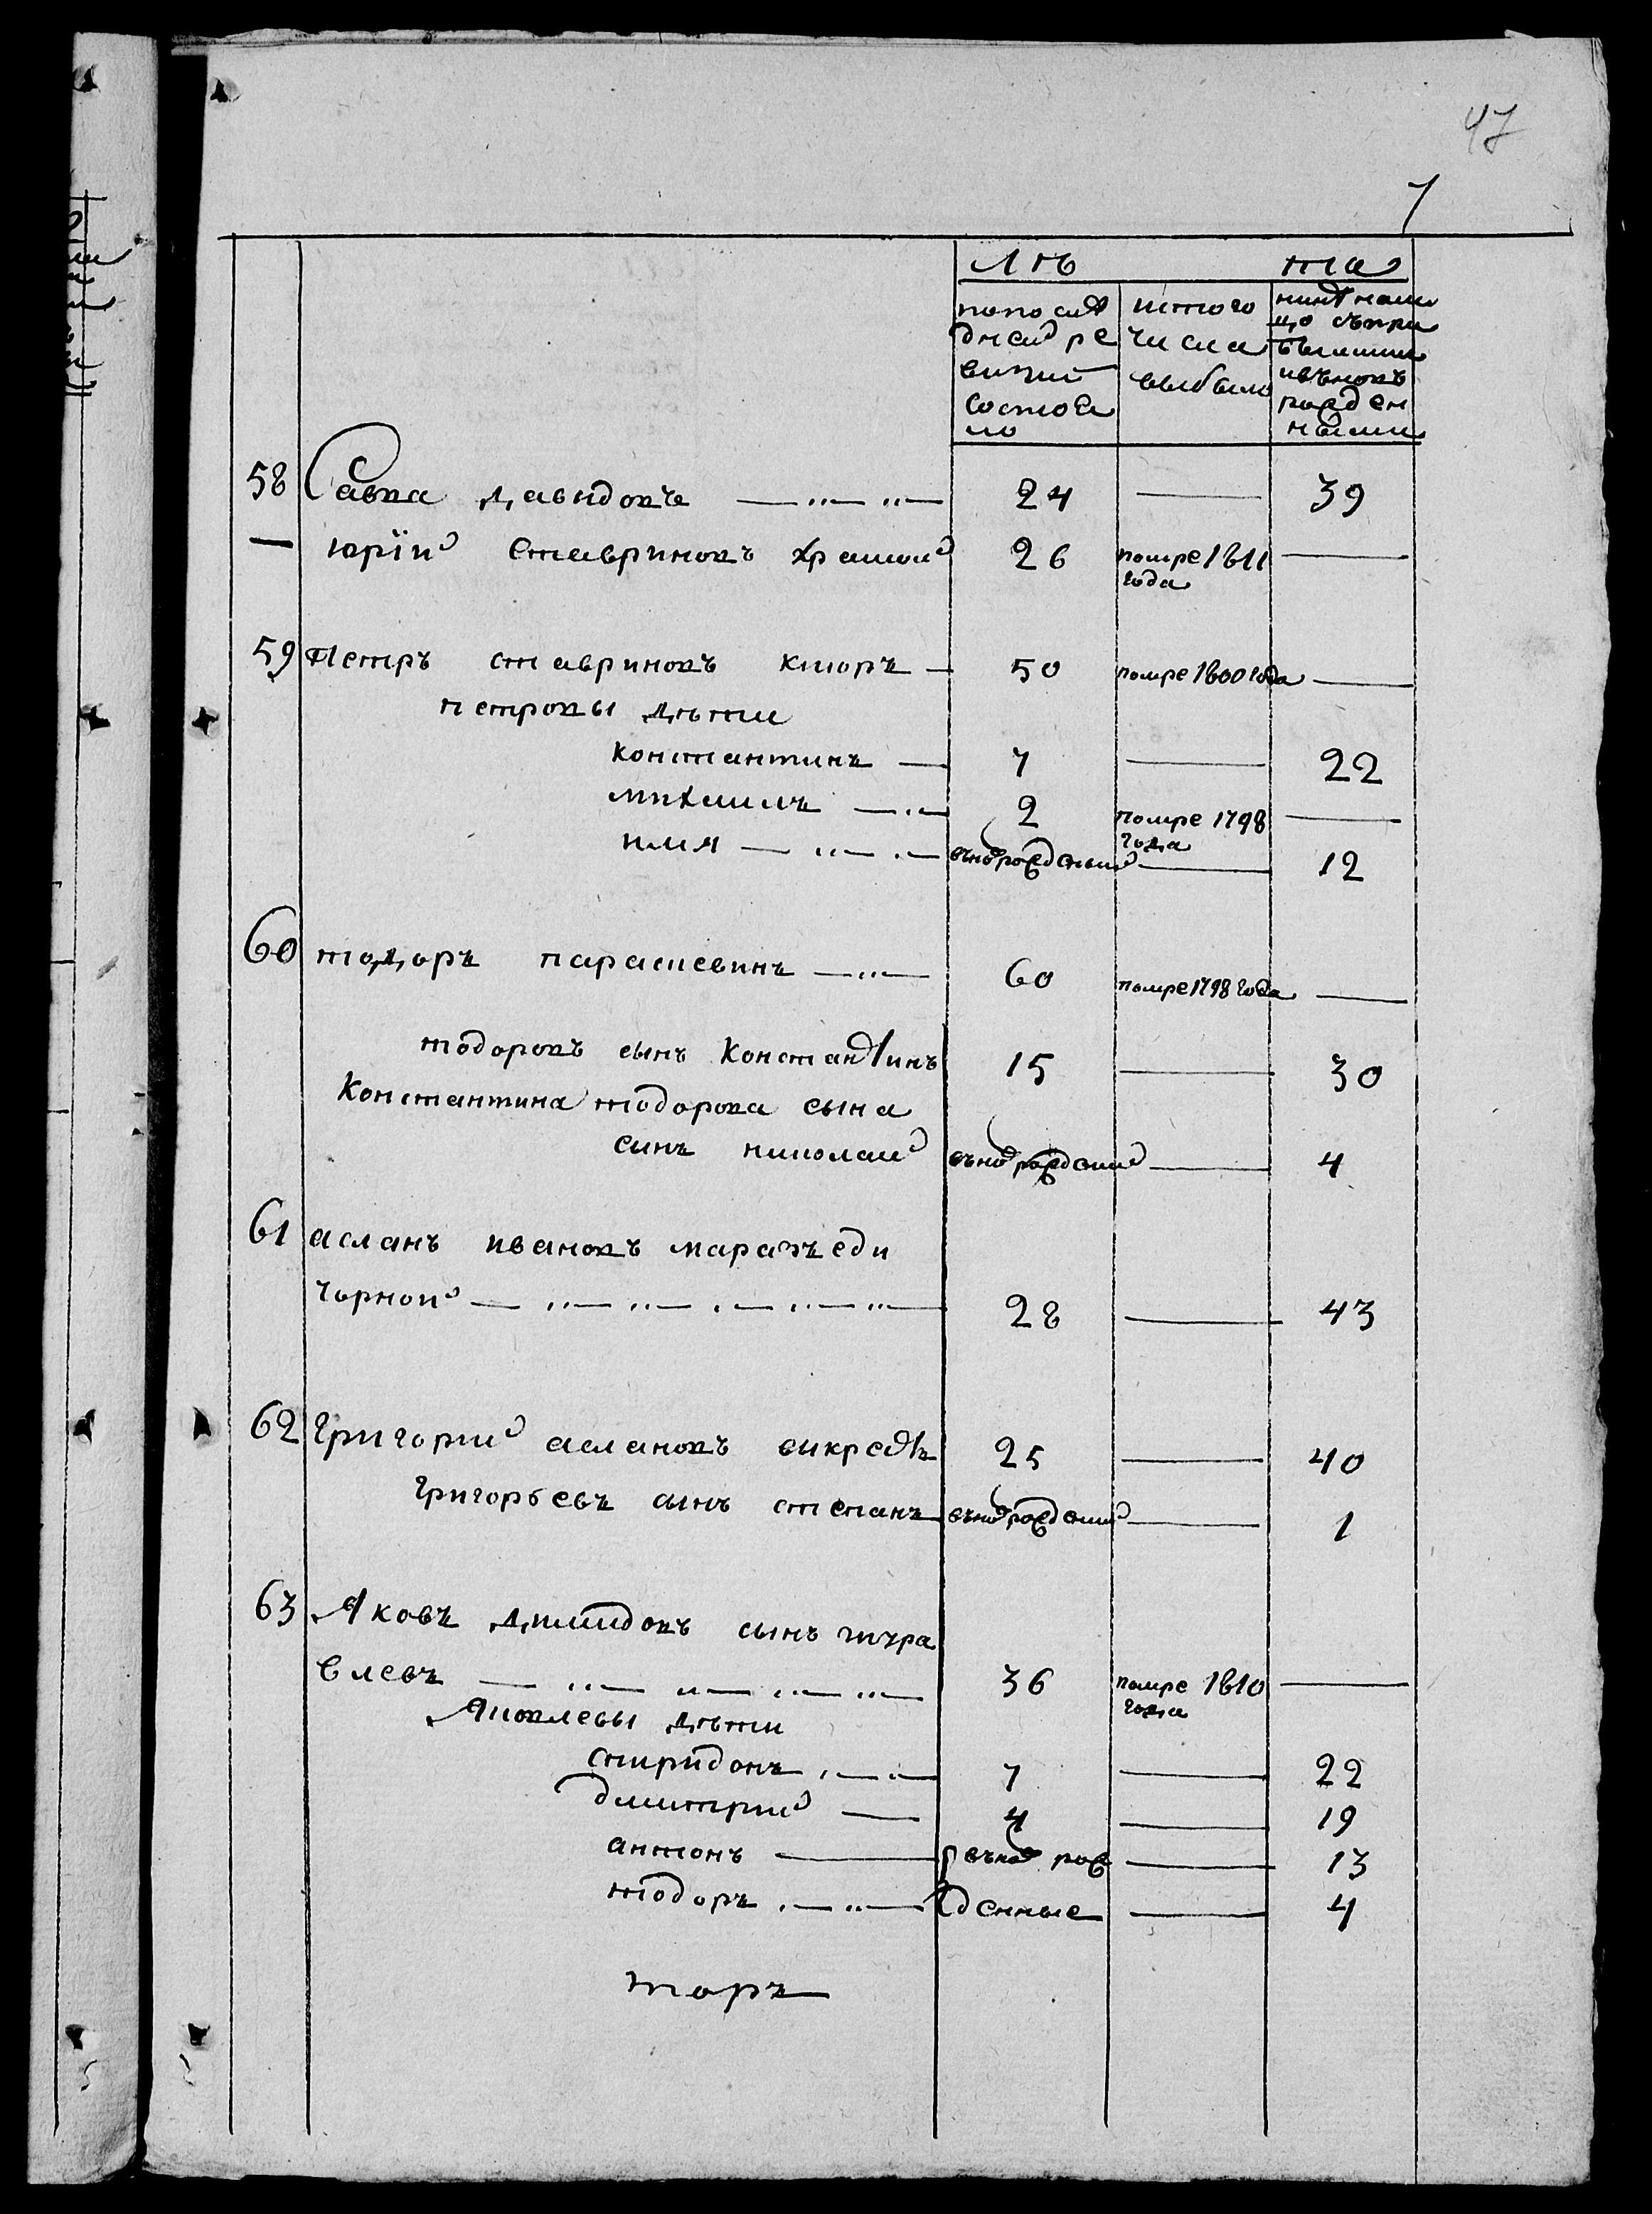 47
7
Лѣ та
попослѣ
дней ре
визіи
состоя
ло
истого
числа
выбыло
нинѣ нали
цо съпри
былими
ивъновь
рожден
ными
58 Савка давидовъ 24 39
юрїй ставриновъ хромой 26 помре 1811
года
59 Петръ ставриновъ кморъ 50 помре 1800 года
петровы дѣти
Константинъ 7 22
михаилъ 2 помре 1798
года
илия вънов рожденый 12
60 тодоръ параскевинъ 60 помре 1798 года
тодоровъ сынъ Константинъ 15 30
Константина тодорова сына
синъ николай вънов рожденый 4
61 асланъ ивановъ
чорной 28 43
62 Григорий аслановъ 25 40
Григорьевъ сынъ степанъ вънов рожденый 1
63 Яковъ сынъ жура
влевъ 36 помре 1810
года
Яковлевы дѣти
спиридонъ 7 22
дмитрий 4 19
антонъ вънов рож 13
тодоръ денные 4
торъ